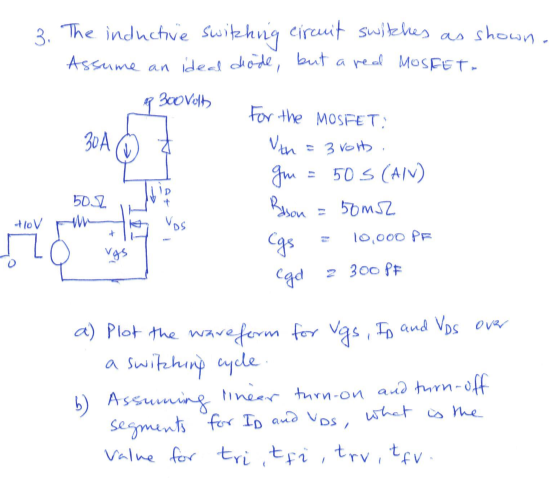 3. The inductive switching circuit switches as shown.
Assume an ideal diode, but a real MOSFET.
300Volts
For the MOSFET:
30A
Vth = 3 volts.
gm = 50 S (A/V)
iD
50Ω
+
Rdson = 50mΩ
+10V
VDS
+
-
Cgs = 10,000 PF
Vgs
0
Cgd = 300 PF
a) Plot the waveform for Vgs, ID and VDS over
a switching cycle.
b) Assuming linear turn-on and turn-off
segments for ID and VDS, what is the
value for tri, tfi, trv, tfv.